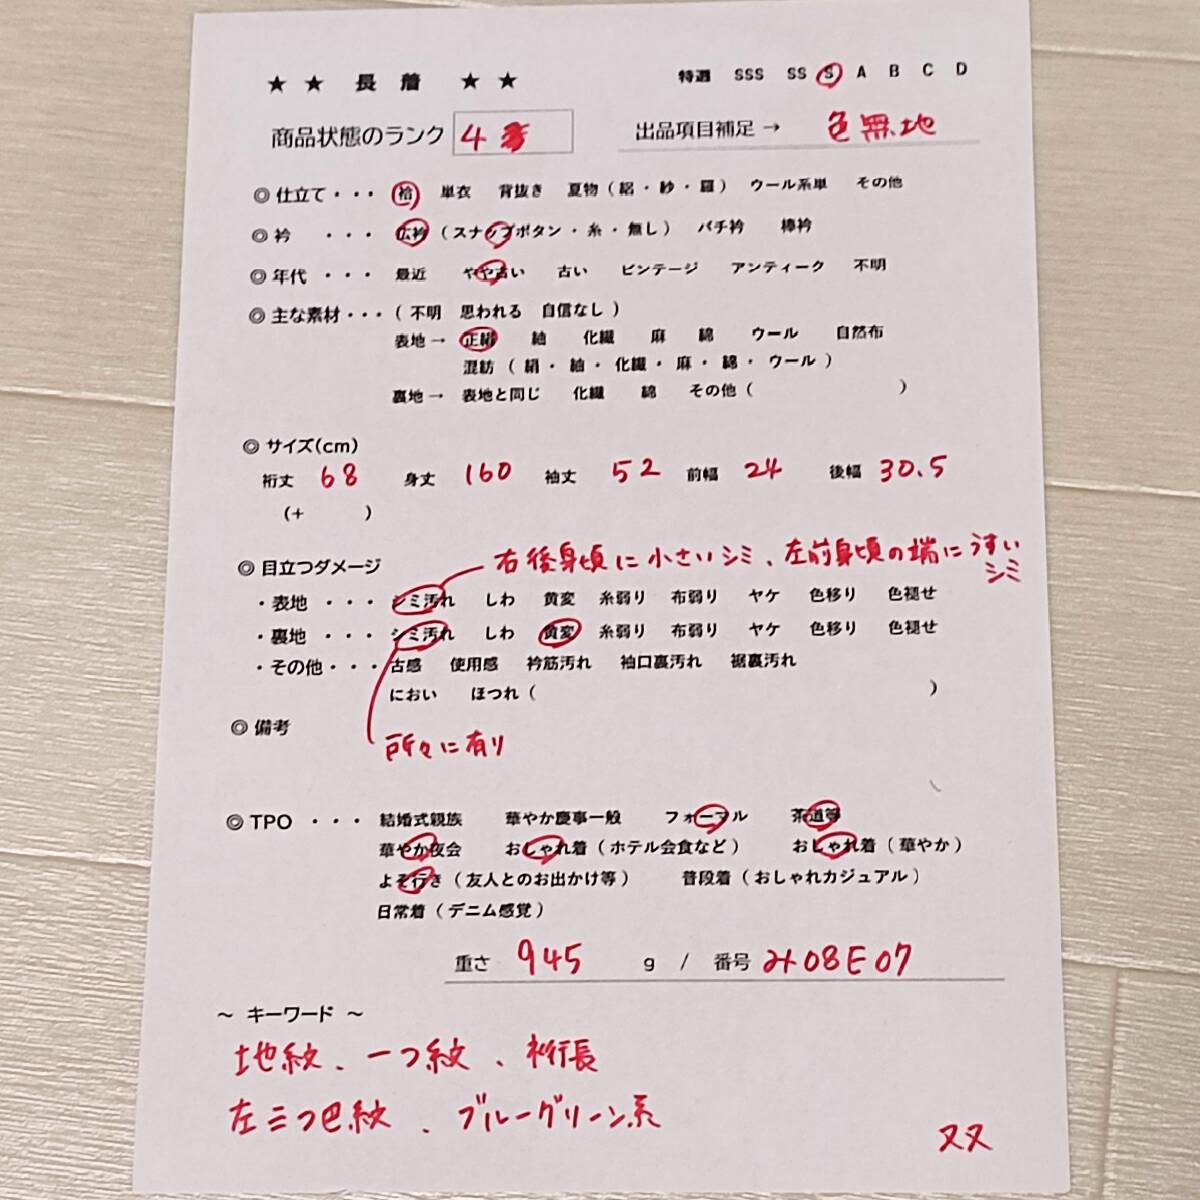 ★ ★ 長 着 ★ ★ 特選 SSS SS S A B C D
商品状態のランク 4 出品項目補足 → 色無地
◎ 仕立て・・・ 袷 単衣 背抜き 夏物（絽・紗・羅） ウール系単 その他
◎ 衿 ・・・ 広衿（スナップボタン・糸・無し） バチ衿 棒衿
◎ 年代 ・・・ 最近 やや古い 古い ビンテージ アンティーク 不明
◎ 主な素材・・・（不明 思われる 自信なし）
表地→ 正絹 紬 化繊 麻 綿 ウール 自然布
混紡（絹・紬・化繊・麻・綿・ウール）
裏地→ 表地と同じ 化繊 綿 その他（ ）
◎ サイズ(cm)
裄丈 68 身丈 160 袖丈 52 前幅 24 後幅 30.5
(+ )
右後身頃に小さいシミ、左前身頃の端にうすい
シミ
◎ 目立つダメージ
・表地 ・・・ シミ汚れ しわ 黄変 糸弱り 布弱り ヤケ 色移り 色褪せ
・裏地 ・・・ シミ汚れ しわ 黄変 糸弱り 布弱り ヤケ 色移り 色褪せ
・その他・・・ 古感 使用感 衿筋汚れ 袖口裏汚れ 裾裏汚れ
におい ほつれ（ ）
◎ 備考
所々に有り
◎ TPO ・・・ 結婚式親族 華やか慶事一般 フォーマル 茶道等
華やか夜会 おしゃれ着（ホテル会食など） おしゃれ着（華やか）
よそ行き（友人とのお出かけ等） 普段着（おしゃれカジュアル）
日常着（デニム感覚）
重さ 945 g / 番号 み08E07
～ キーワード ～
地紋、一つ紋、裄長
左三つ巴紋、ブルーグリーン系
ヌヌ